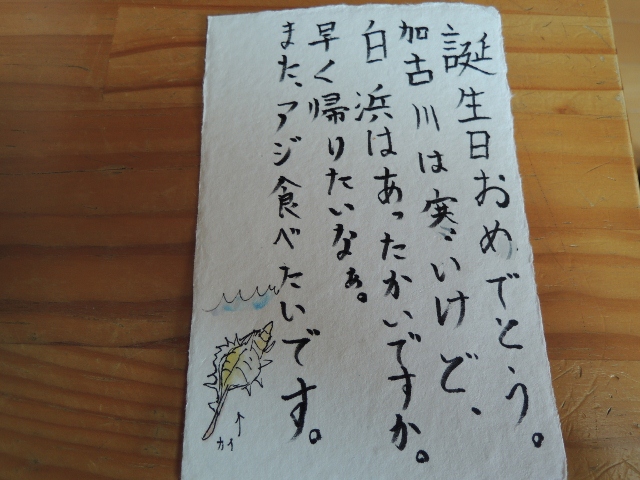 誕生日おめでとう。
加古川は寒いけど、
白浜はあったかいですか。
早く帰りたいなぁ。
また、アジ食べたいです。
カイ